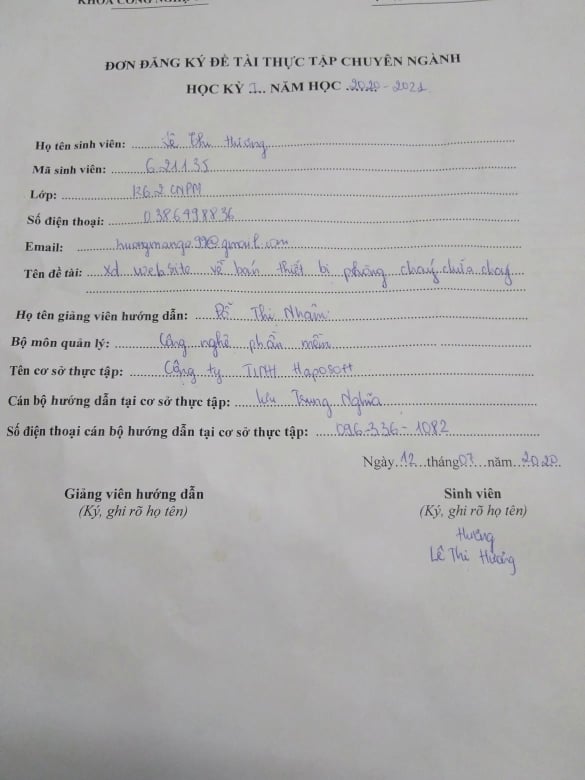 KHOA CÔNG NGHỆ
ĐƠN ĐĂNG KÝ ĐỀ TÀI THỰC TẬP CHUYÊN NGÀNH
HỌC KỲ I... NĂM HỌC .2020-2021
Họ tên sinh viên: Lê Thị Hương
Mã sinh viên: 621135
Lớp: K62CNPM
Số điện thoại: 0386498836
Email: huongmango99@gmail.com
Tên đề tài: xd website về bán thiết bị phòng cháy chữa cháy
Họ tên giảng viên hướng dẫn: Đỗ Thị Nhâm
Bộ môn quản lý: Công nghệ phần mềm
Tên cơ sở thực tập: Công ty TNHH Haposoft
Cán bộ hướng dẫn tại cơ sở thực tập: Lưu Trung Nghĩa
Số điện thoại cán bộ hướng dẫn tại cơ sở thực tập: 096-336-1082
Ngày 12 tháng 07 năm 2020
Giảng viên hướng dẫn
(Ký, ghi rõ họ tên)
Sinh viên
(Ký, ghi rõ họ tên)
Hương
Lê Thị Hương